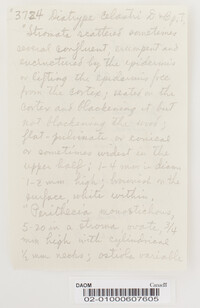 "3724 Diatrype Celastri
"Stromata scattered sometimes
several confluent, erumpent and
encircled by the epidermis
or lifting the epidermis free
from the cortex; seated in the
cortex and blackening it but
not blackening the wood;
flat-pulvinate or conical
or sometimes widest in the
upper half; 1-4 mm in diam
1-2 mm high; brown on the
surface, white within,
"Perithecia monostichous,
5-20 in a stroma ovate, 3/4
mm high with cylindrical
mm necks; ostiola
DAOM Canada
02-01000607605